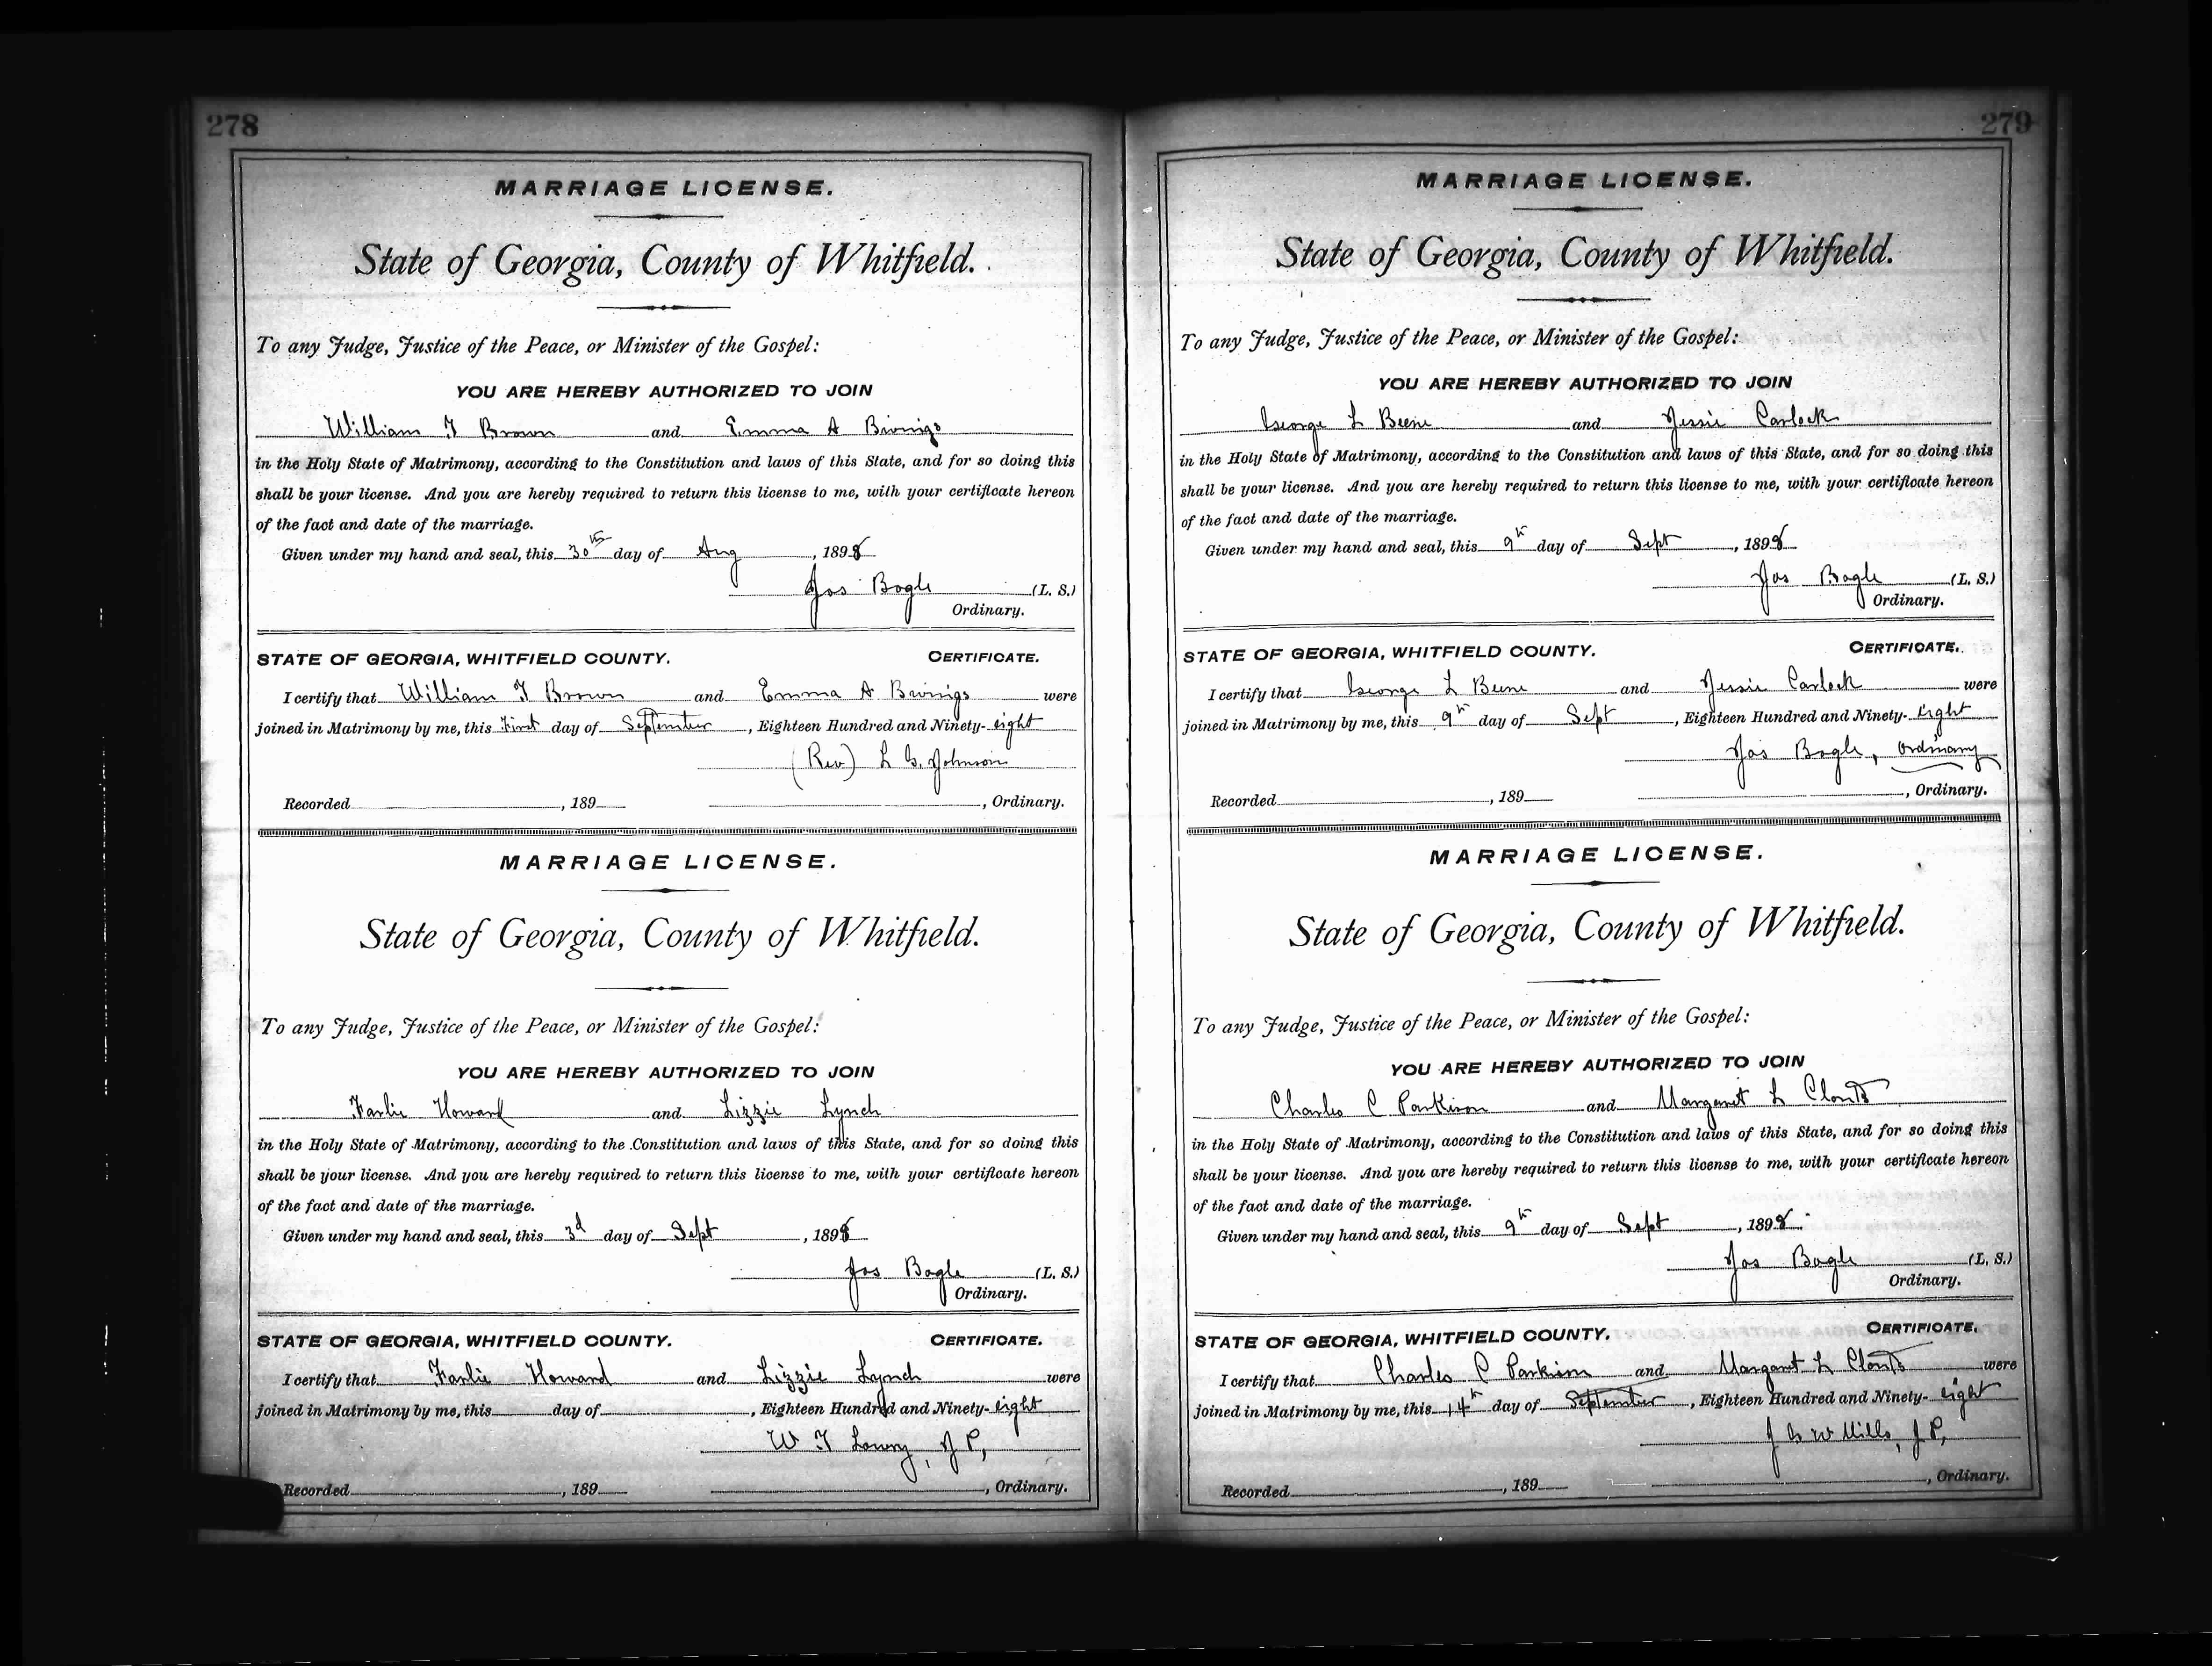 278
MARRIAGE LICENSE.
State of Georgia, County of Whitfield.
To any Judge, Justice of the Peace, or Minister of the Gospel:
YOU ARE HEREBY AUTHORIZED TO JOIN
William F Brown and Emma A Bivings
in the Holy State of Matrimony, according to the Constitution and laws of this State, and for so doing this
shall be your license. And you are hereby required to return this license to me, with your certificate hereon
of the fact and date of the marriage.
Given under my hand and seal, this 30th day of Aug, 1898
Jas Bogle (L. S.)
Ordinary.
STATE OF GEORGIA, WHITFIELD COUNTY. CERTIFICATE.
I certify that William F Brown and Emma A Bivings were
joined in Matrimony by me, this First day of September, Eighteen Hundred and Ninety-eight
(Rev) L G. Johnson
Recorded , 189 , Ordinary.
MARRIAGE LICENSE.
State of Georgia, County of Whitfield.
To any Judge, Justice of the Peace, or Minister of the Gospel:
YOU ARE HEREBY AUTHORIZED TO JOIN
Farlie Howard and Lizzie Lynch
in the Holy State of Matrimony, according to the Constitution and laws of this State, and for so doing this
shall be your license. And you are hereby required to return this license to me, with your certificate hereon
of the fact and date of the marriage.
Given under my hand and seal, this 3d day of Sept, 1898
Jas Bogle (L. S.)
Ordinary.
STATE OF GEORGIA, WHITFIELD COUNTY. CERTIFICATE.
I certify that Farlie Howard and Lizzie Lynch were
joined in Matrimony by me, this day of , Eighteen Hundred and Ninety-eight
W F Lowry, J P,
Recorded , 189 , Ordinary.
279
MARRIAGE LICENSE.
State of Georgia, County of Whitfield.
To any Judge, Justice of the Peace, or Minister of the Gospel:
YOU ARE HEREBY AUTHORIZED TO JOIN
George L Beene and Jessie Carlock
in the Holy State of Matrimony, according to the Constitution and laws of this State, and for so doing this
shall be your license. And you are hereby required to return this license to me, with your certificate hereon
of the fact and date of the marriage.
Given under my hand and seal, this 9th day of Sept, 1898
Jas Bogle (L. S.)
Ordinary.
STATE OF GEORGIA, WHITFIELD COUNTY. CERTIFICATE.
I certify that George L Beene and Jessie Carlock were
joined in Matrimony by me, this 9th day of Sept, Eighteen Hundred and Ninety-Eight
Jas Bogle, Ordinary
Recorded , 189 , Ordinary.
MARRIAGE LICENSE.
State of Georgia, County of Whitfield.
To any Judge, Justice of the Peace, or Minister of the Gospel:
YOU ARE HEREBY AUTHORIZED TO JOIN
Charles C Parkison and Margaret L Clonts
in the Holy State of Matrimony, according to the Constitution and laws of this State, and for so doing this
shall be your license. And you are hereby required to return this license to me, with your certificate hereon
of the fact and date of the marriage.
Given under my hand and seal, this 9th day of Sept, 1898
Jas Bogle (L. S.)
Ordinary.
STATE OF GEORGIA, WHITFIELD COUNTY. CERTIFICATE.
I certify that Charles C Parkison and Margaret L Clonts were
joined in Matrimony by me, this 14th day of September, Eighteen Hundred and Ninety-eight
J G W Mills, J P,
Recorded , 189 , Ordinary.